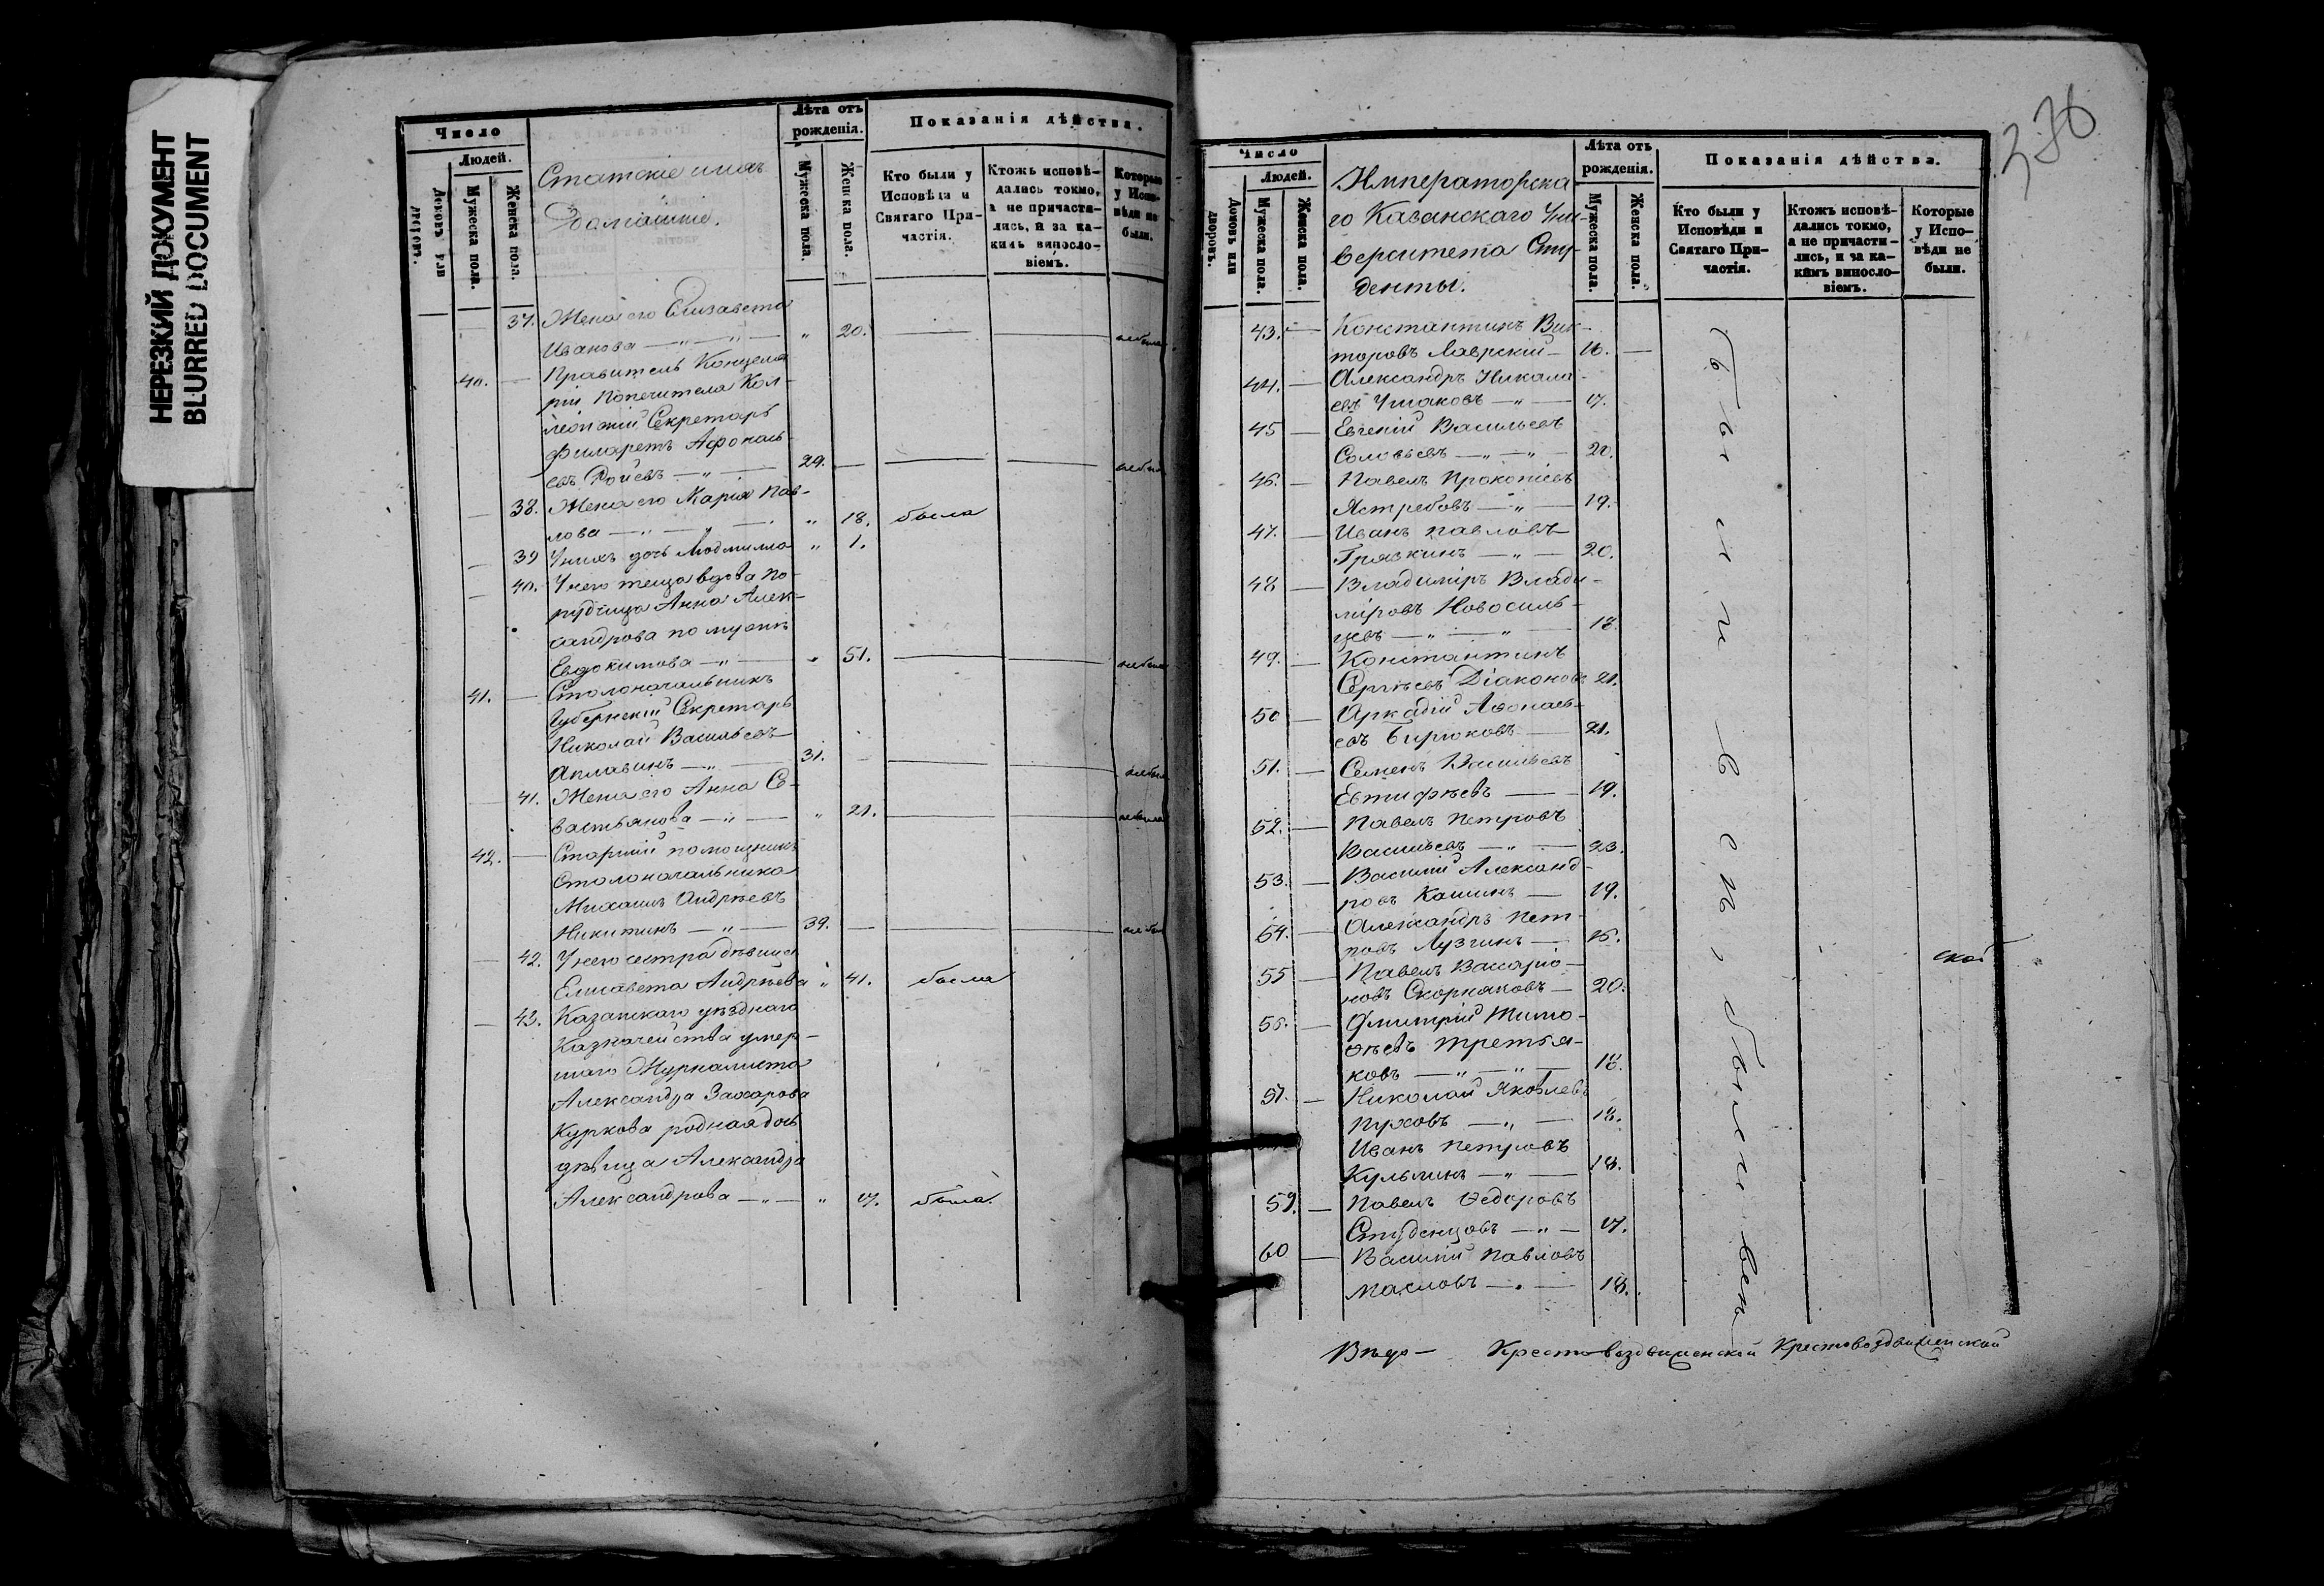 НЕРЕЗКИЙ ДОКУМЕНТ
BLURRED DOCUMENT
Число
Людей.
Мужеска пола.
Женска пола.
Статскіе и ихъ
домашніе.
Лѣта отъ
рожденія.
Мужеска пола.
Женска пола.
Показанія дѣйства.
Кто были у
Исповѣди и
Святаго При-
частія.
Ктожъ исповѣ-
дались токмо,
а не причасти-
лись, и за ка-
кимъ винosло-
віемъ.
Которые
у Испо-
вѣди не
были.
37. Жена его Елизавета
Иванова — „ — „ — „ 20. небыла
40. — Правитель Канцеля
ріи Попечителя Кол-
лежскій Секретарь
Филаретъ Афонась-
евъ — „ — 29.
38. Жена его Марія Пав-
лова — „ — „ — „ 18. была
39 У нихъ дочь Людмилла „ 1.
40. У него теща вдова По-
ручица Анна Алек-
сандрова по мужѣ
Евдокимова — „ — „ 51. небыла
41. — Столоначальникъ
Губернскій Секретарь
Николай Васильевъ
Аплавинъ — „ — 31.
41. Жена его Анна Се-
вастьянова — „ — „ 21. небыла
42. — Старшій помощникъ
Столоначальника
Михаилъ Андрѣевъ
Никитинъ — „ — 39.
42. У него сестра дѣвица
Елисавета Андрѣева „ 41. была
43. Казанскаго уѣзднаго
Казначейства умер-
шаго Журналиста
Александра Захарова
Куркова родная дочь
дѣвица Александра
Александрова — „ — „ 17. была.
276
Число
Людей.
Дворовъ или
дворовъ.
Мужеска пола.
Женска пола.
Императорска-
го Казанскаго Уни-
верситета Сту-
денты.
Лѣта отъ
рожденія.
Мужеска пола.
Женска пола.
Показанія дѣйства.
Кто были у
Исповѣди и
Святаго При-
частія.
Ктожъ исповѣ-
дались токмо,
а не причасти-
лись, и за ка-
кимъ виносло-
віемъ.
Которые
у Испо-
вѣди не
были.
43. — Константинъ Вик-
торовъ Лаврскій — 16. —
44. — Александръ Никола-
евъ Ушаковъ — „ — 17.
45 — Евгеній Васильевъ
Соловьевъ — „ — „ — 20.
46. — Павелъ Прокопіевъ
Ястребовъ — „ — 19.
47. — Иванъ Павловъ
Грязкинъ — „ — 20.
48 — Владиміръ Влади-
міровъ Новосиль-
цевъ — „ — „ — 18.
49. — Константинъ
Сергѣевъ Діаконовъ 21.
50 — Аркадій Аѳонась-
евъ Бирюковъ — 21.
51. — Семенъ Васильевъ
Евтифѣевъ — 19.
52. — Павелъ Петровъ
Васильевъ — „ — 23.
53. — Василій Александ-
ровъ Кашинъ — 19.
54. — Александръ Пет-
ровъ Лузгинъ —
55 — Павелъ
новъ Скорняковъ — 20.
56. — Дмитрій Тимо-
ѳѣевъ Третья-
ковъ — „ — „ — 18.
57. — Николай Яковлевъ
Пуховъ — „ — 18.
Иванъ Петровъ
— „ — 18.
59. — Павелъ Ѳедоровъ
Студенцовъ — „ — 17.
60 — Василій Павловъ
Масловъ — „ — 18.
ской
Вѣдо- Кресто-воздвиженской Крестовоздвиженской